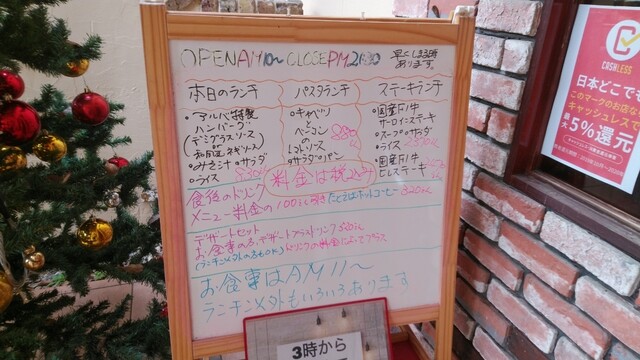 OPEN AM10〜 CLOSE PM.
早じまい時あります。
本日のランチ
パスタランチ
ステーキランチ
・アルハ特製
ハンバーグ
(デミグラスソース)
or
ネギソース)
・みそ汁・サラダ
・ライス
・キャベツ
ベーコン
の
トマトソース
・サラダ・パン
・国産F1牛
サーロインステーキ
・スープ・サラダ
・ライス
・国産F1牛
ヒレステーキ
料金は税込み
食後のドリンク
メニュー料金の100円引き たとえばホットコーヒー320円
デザートセット
お食事の方、デザートプラスドリンク520円
(ランチ以外の方もOK) ドリンクの料金によってプラス
お食事はAM11〜
ランチ以外もいろいろあります
3時から
CASHLESS
日本どこでも
このマークのお店な
キャッシュレスで
最大5%還元